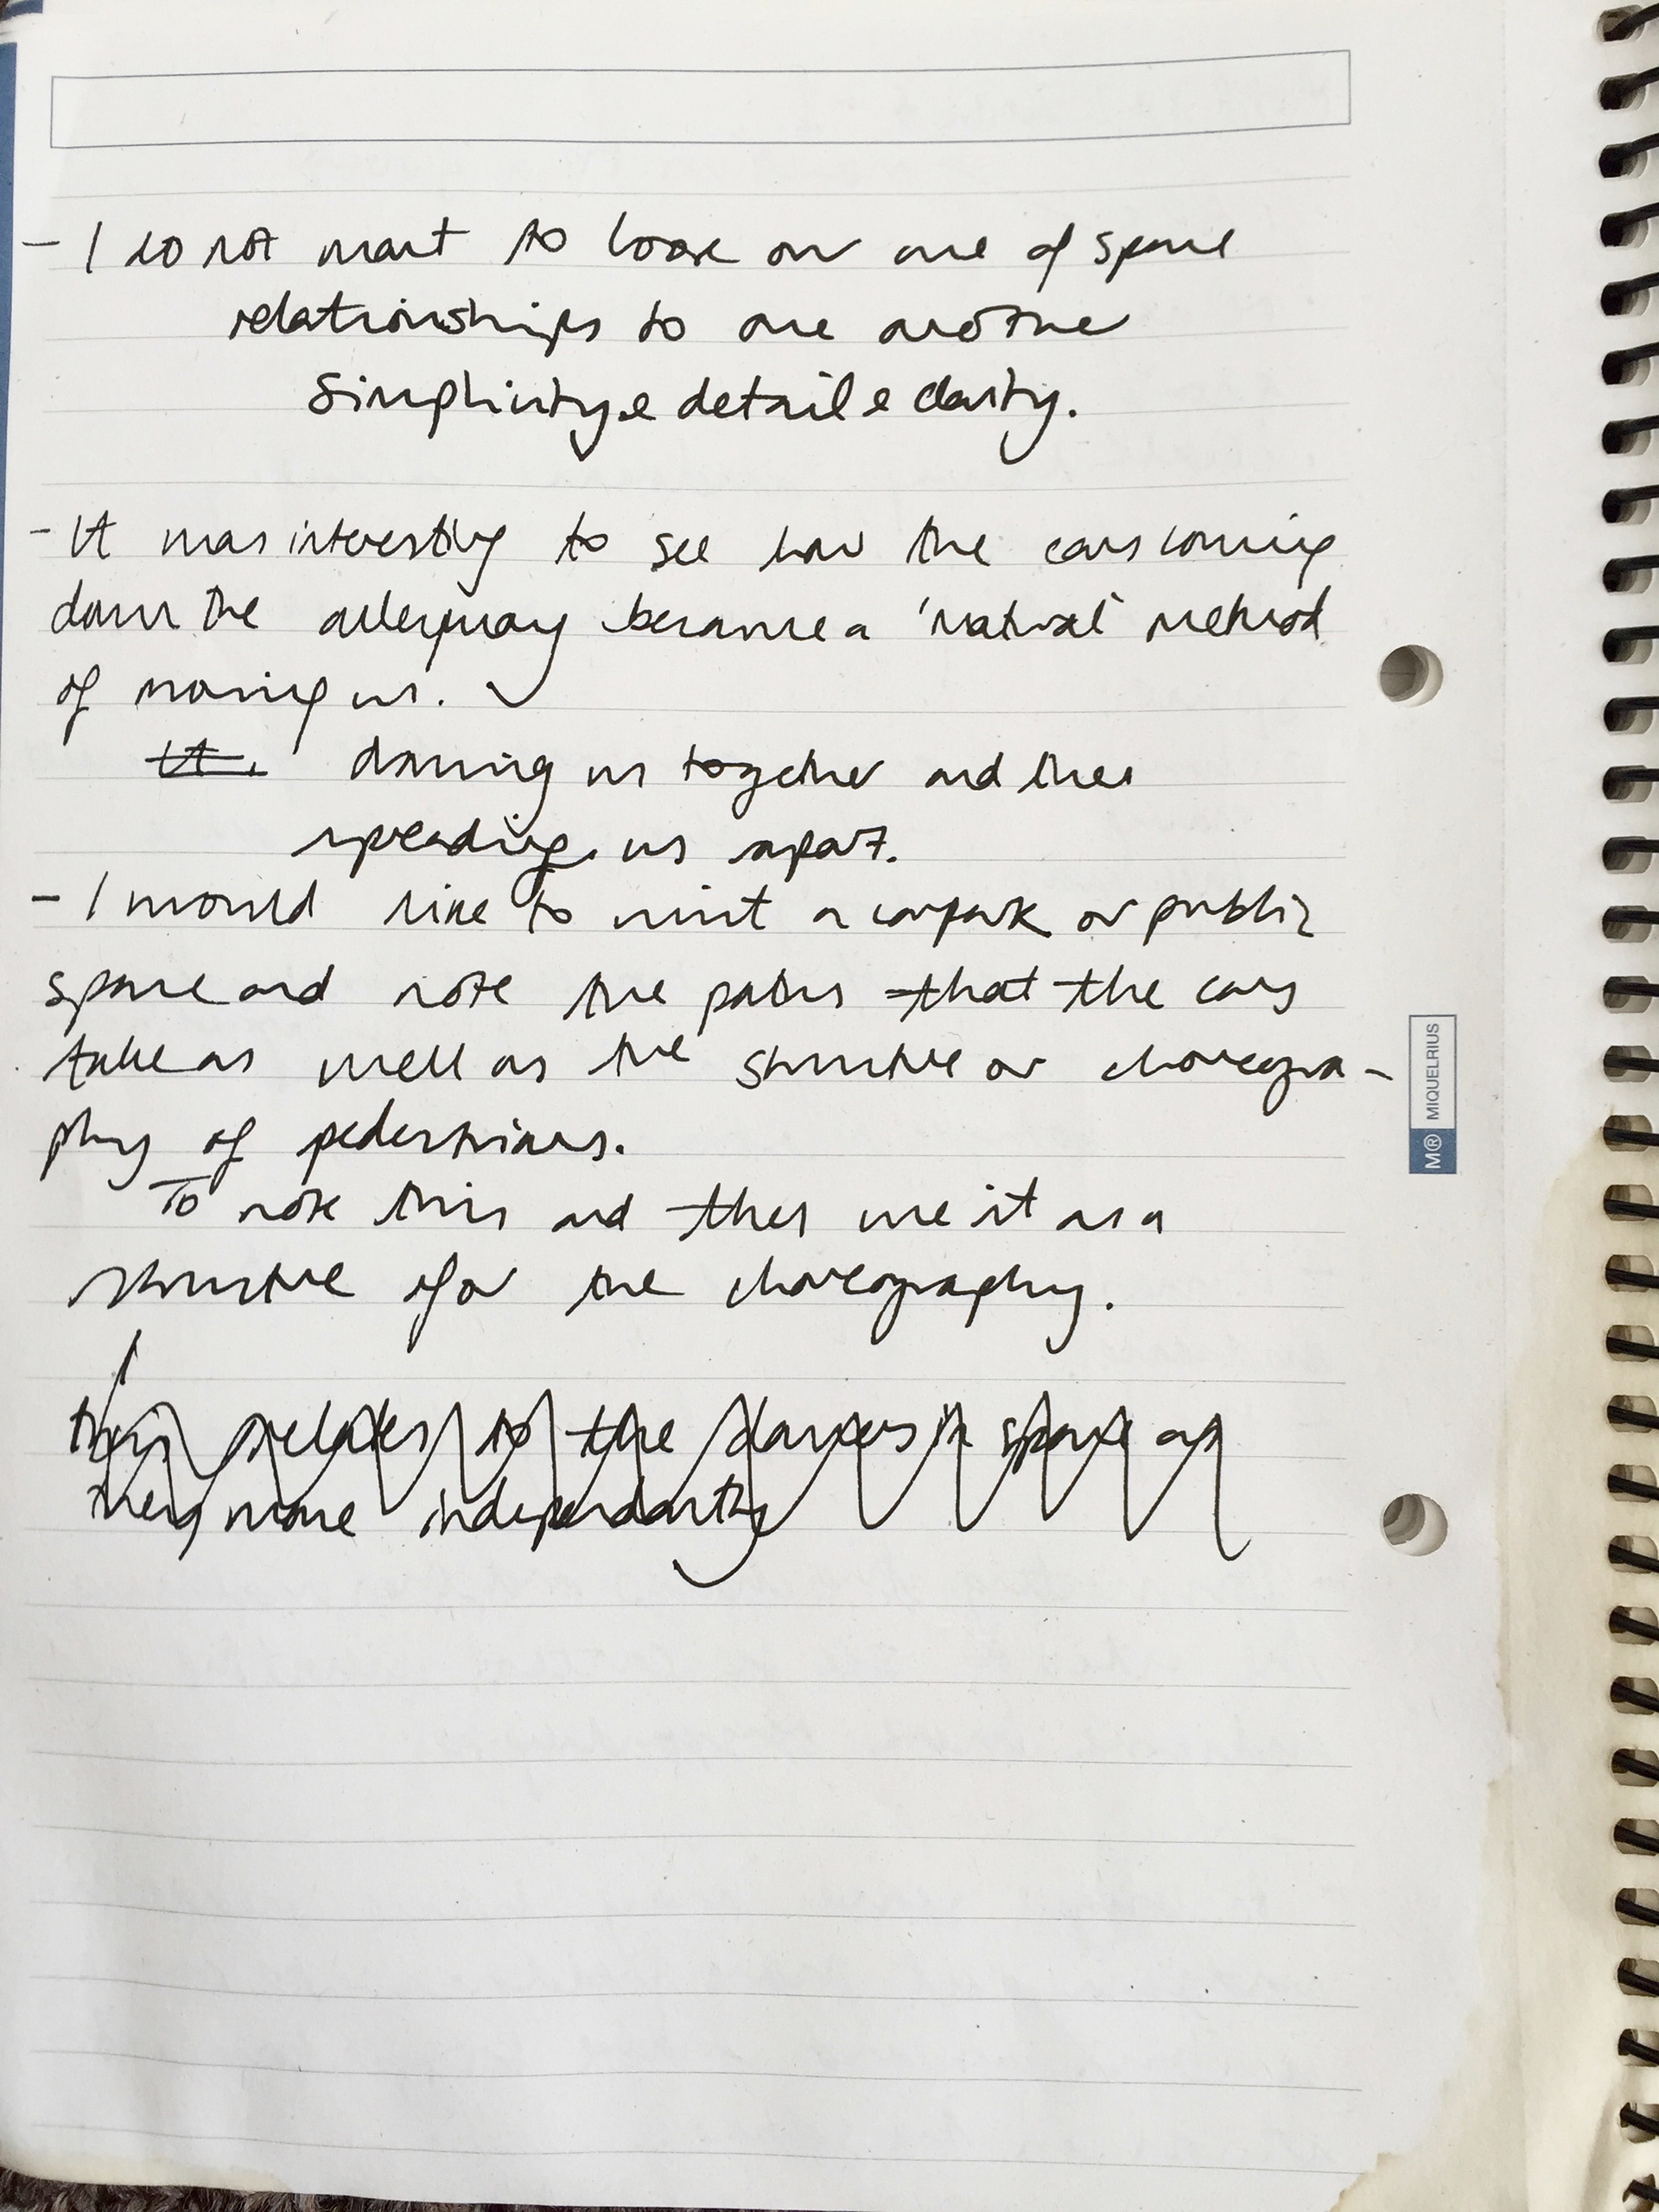 - I do not want to loose our use of space
relationships to one another
Simplicity & detail & clarity.
- It was interesting to see how the cars coming
down the alleyway became a 'natural' method
of moving us.
It. drawing us together and then
spreading us apart.
- I would like to visit a carpark or public
space and note the paths that the cars
take as well as the structure or choreogra-
phy of pedestrians.
To note this and then use it as a
structure for the choreography.
this relates to the dancers in space as
they move independantly
M® MIQUELRIUS